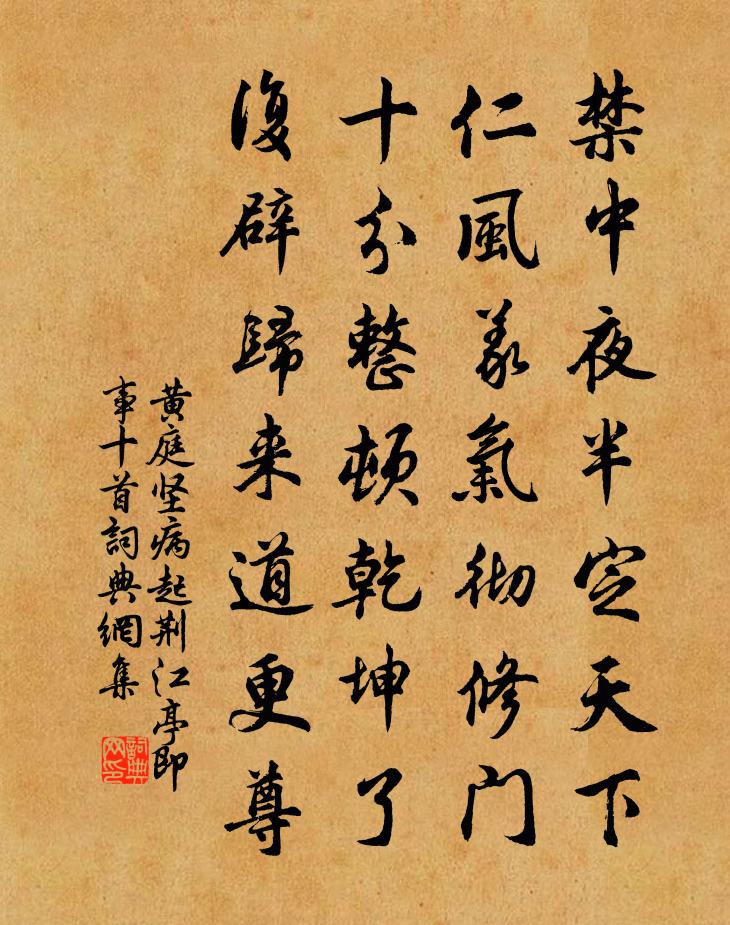 禁中夜半定天下
仁風義氣彻修门
十分整頓乾坤了
復辟歸来道更尊
黄庭坚病起荆江亭即
事十首詞典網集
詞典
网印